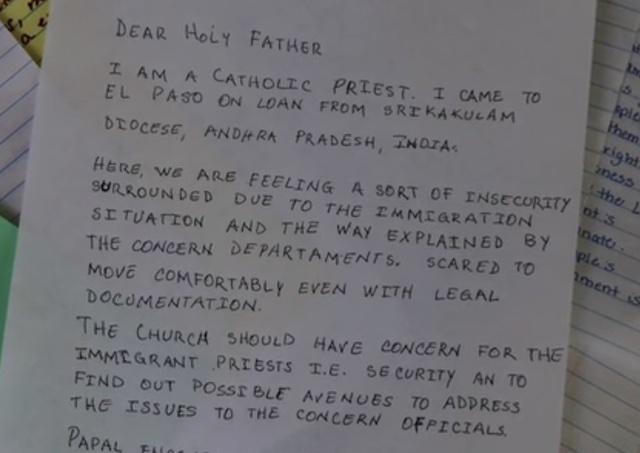 DEAR HOLY FATHER
I AM A CATHOLIC PRIEST. I CAME TO
EL PASO ON LOAN FROM SRIKAKULAM
DIOCESE, ANDHRA PRADESH, INDIA.
HERE, WE ARE FEELING A SORT OF INSECURITY
SURROUNDED DUE TO THE IMMIGRATION
SITUATION AND THE WAY EXPLAINED BY
THE CONCERN DEPARTAMENTS. SCARED TO
MOVE COMFORTABLY EVEN WITH LEGAL
DOCUMENTATION.
THE CHURCH SHOULD HAVE CONCERN FOR THE
IMMIGRANT PRIESTS I.E. SECURITY AN TO
FIND OUT POSSIBLE AVENUES TO ADDRESS
THE ISSUES TO THE CONCERN OFFICIALS.
PAPAL
them
right
the